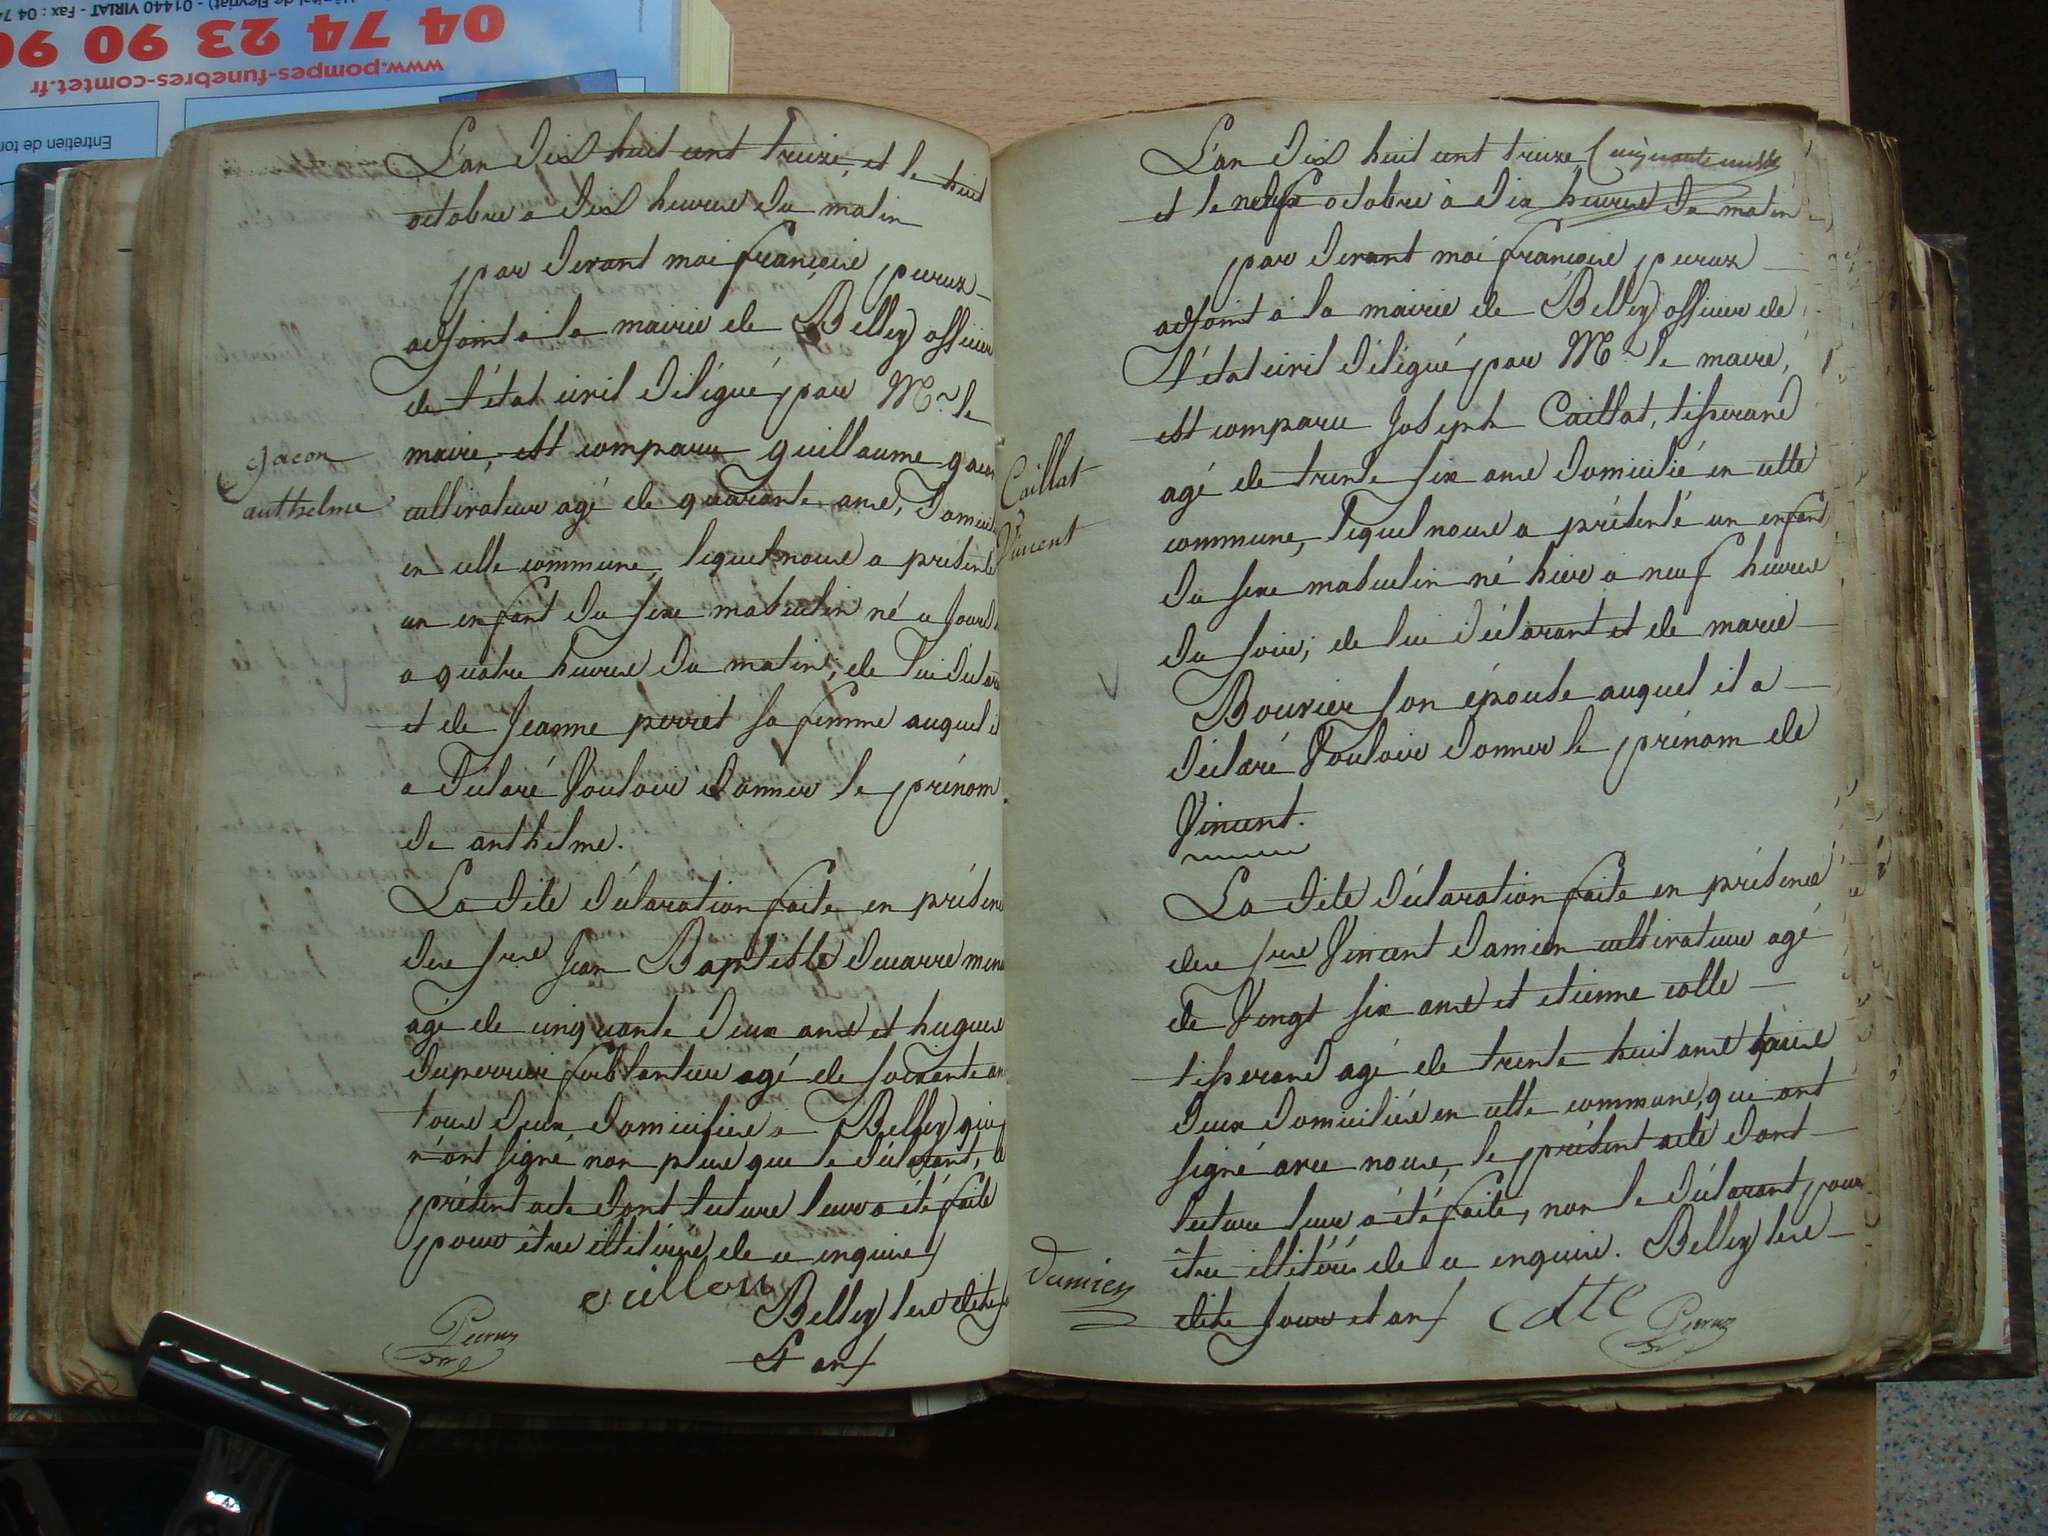 (Hôpital de Fleyriat) - 01440 VIRIAT - Fax : 04 74
04 74 23 90 90
www.pompes-funebres-comtet.fr
Entretien de tom
L'an dix huit cent treize, et le huit
octobre a dix heures du matin
par devant moi françois peruz
adjoint à la mairie de Belley officier
de l'état civil délégué par Mr. le
maire, est comparu guillaume gacon
cultivateur agé de quarante ans, Domicil
en cette commune, lequel nous a présenté
un enfant du sexe masculin né ce jourd
a quatre heures du matin, de lui declara
et de Jeanne perret sa femme auquel il
a déclaré Vouloir donner le prénom
de anthelme.
La dite déclaration faite en présence
des srs Jean Baptiste ducarre
agé de cinquante deux ans et hugues
duperrier ferblantier agé de soixante ans
tous deux domiciliés a Belley qui
n'ont signé non plus que le déclarant, le
présent acte dont lecture leur a été faite
pour être illitérés de ce enquis
cullou
Belley les dits j
et an
Peruz
gacon
anthelme
L'an dix huit cent treize
et le neuf octobre à dix heures du matin
par devant moi françois peruz
adjoint à la mairie de Belley officier de
l'état civil délégué par Mr. le maire,
est comparu Joseph Caillat, tisserand
agé de trente six ans domicilié en cette
commune, lequel nous a présenté un enfant
du sexe masculin né hier a neuf heures
du soir, de lui déclarant et de marie
Bouvier son épouse auquel il a
déclaré Vouloir donner le prénom de
Vincent.
La dite déclaration faite en présence
des srs Vincent Damien cultivateur agé
de Vingt six ans et etienne cotte
tisserand agé de trente huit ans tous
deux domiciliés en cette commune, qui ont
signé avec nous, le présent acte dont
lecture leur a été faite, non le déclarant pour
être illitéré de ce enquis. Belley les
dits jour et an
Caillat
Vincent
Damien
cotte
Peruz